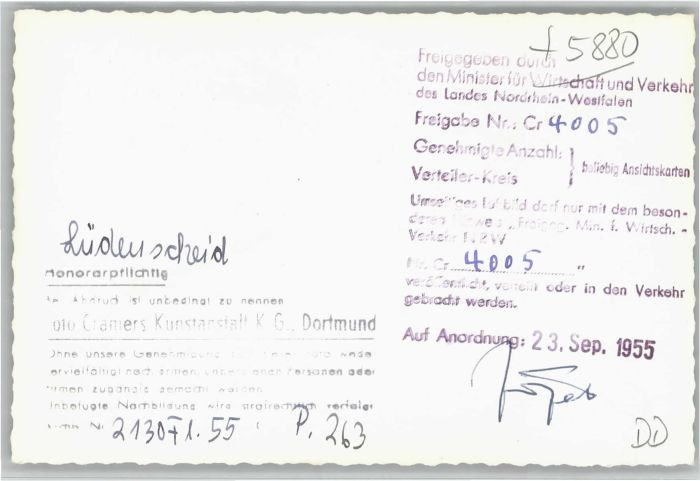 + 5880
Freigegeben durch
den Minister für Wirtschaft und Verkehr
des Landes Nordrhein-Westfalen
Freigabe Nr.: Cr 4005
Genehmigte Anzahl: } beliebig Ansichtskarten
Verteiler-Kreis
Umseitiges Luftbild darf nur mit dem beson-
deren Hinweis „Freigeg. Min. f. Wirtsch. -
Verkehr NRW
Nr. Cr 4005 "
veröffentlicht, verteilt oder in den Verkehr
gebracht werden.
Auf Anordnung: 23. Sep. 1955
Lüdenscheid
Honorarpflichtig
Abdruck ist unbedingt zu nennen
oto Cramers Kunstanstalt K.G., Dortmund
Ohne unsere Genehmigung
ervielfältigt noch Personen oder
irmen zugängig gemacht werden
Unbefugte Nachbildung wird strafrechtlich verfolgt
Nr. 2130 Fl. 55 P. 263
DD